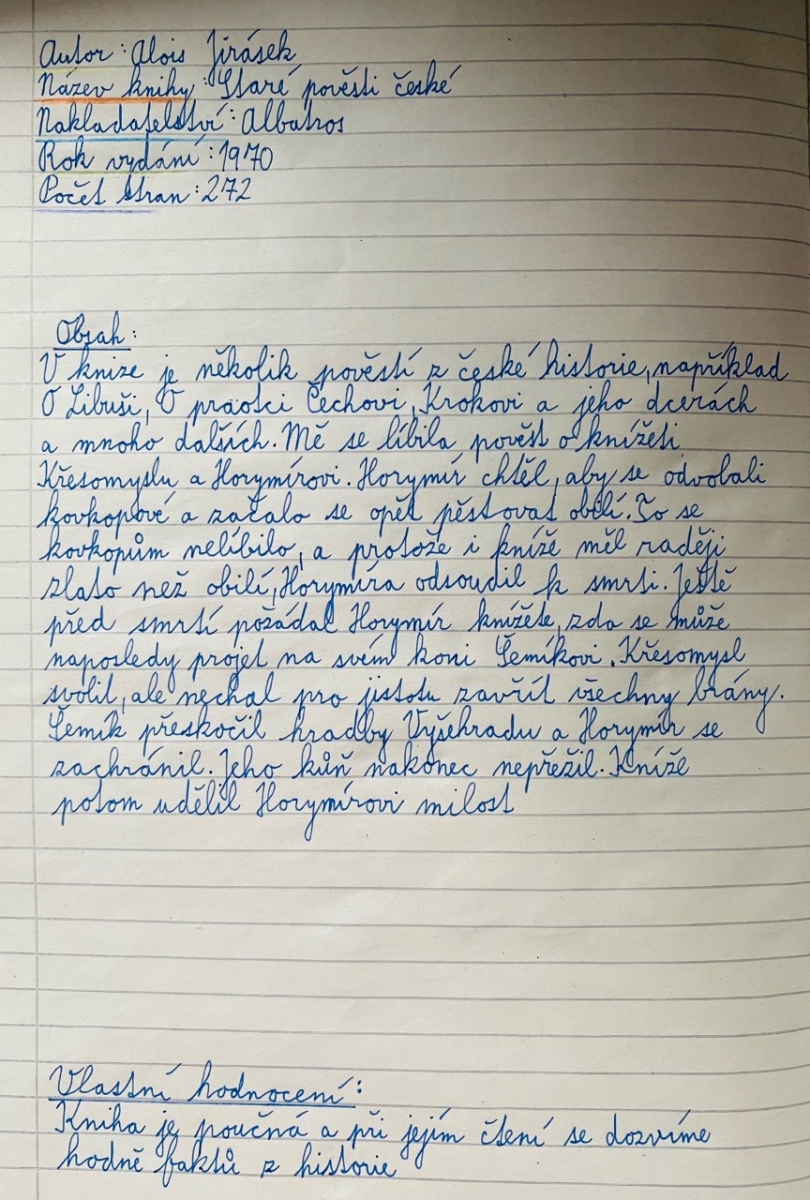 Autor: Alois Jirásek
Název knihy: Staré pověsti české
Nakladatelství: Albatros
Rok vydání: 1970
Počet stran: 272
Obsah:
V knize je několik pověstí z české historie, například
O Libuši, O praotci Čechovi, Krokovi a jeho dcerách
a mnoho dalších. Mě se líbila pověst o knížeti
Křesomyslu a Horymírovi. Horymír chtěl, aby se odvolali
kovkopové a začalo se opět pěstovat obilí. To se
kovkopům nelíbilo, a protože i kníže měl raději
zlato než obilí, Horymíra odsoudil k smrti. Ještě
před smrtí požádal Horymír knížete, zda se může
naposledy projet na svém koni Šemíkovi. Křesomysl
svolil, ale nechal pro jistotu zavřít všechny brány.
Šemík přeskočil hradby Vyšehradu a Horymír se
zachránil. Jeho kůň nakonec nepřežil. Kníže
potom udělil Horymírovi milost
Vlastní hodnocení:
Kniha je poučná a při jejím čtení se dozvíme
hodně faktů z historie